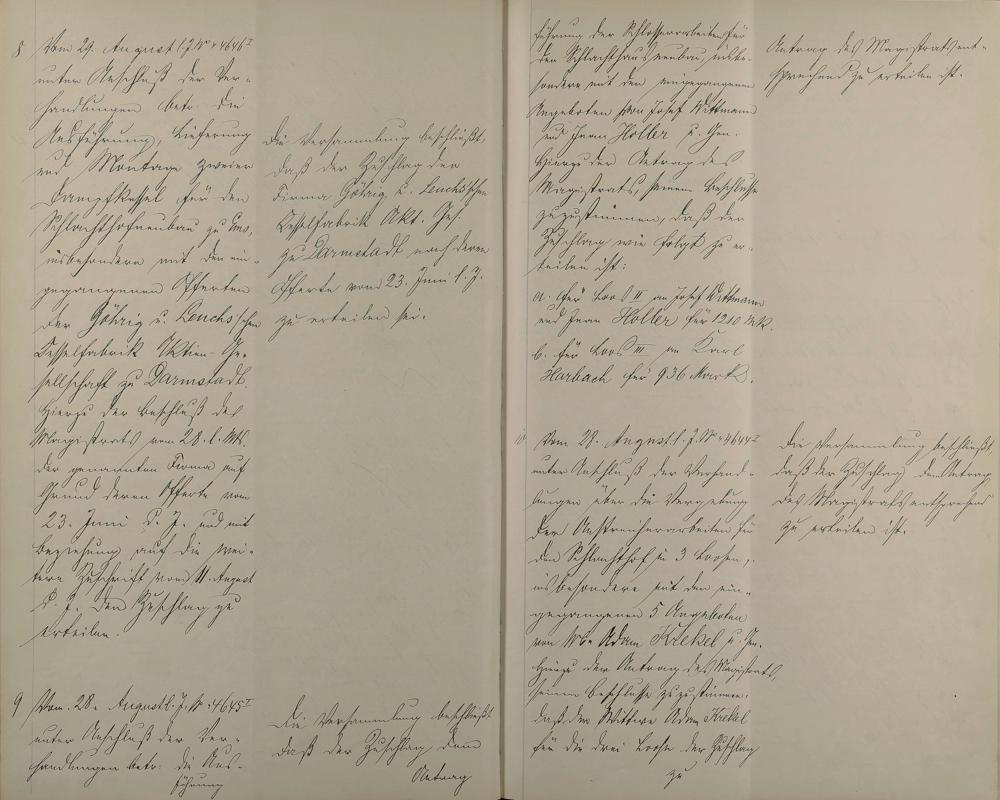 8 Vom 29. August l. J. No 4646 I
unter Anschluß der Ver-
handlungen betr. die
Ausführung, Lieferung
und Montage zweier
Dampfkessel für den
Schlachthofneubau zu Ems,
insbesondere mit den ein-
gegangenen Offerten
der Göhrig u. Leuchs'schen
Kesselfabrik Aktien-Ge-
sellschaft zu Darmstadt.
Hierzu der Beschluß des
Magistrats vom 28. l. Mts.
der genannten Firma auf
Grund deren Offerte vom
23. Juni d. J. und mit
Beziehung auf die wei-
tere Zuschrift vom 11. August
d. J. den Zuschlag zu
erteilen.
Die Versammlung beschließt,
daß der Zuschlag der
Firma Göhrig u. Leuchs'schen
Kesselfabrik Akt. Ges.
zu Darmstadt nach deren
Offerte vom 23. Juni l. J.
zu erteilen sei.
9 Vom 28. August l. J. No 4645 I
unter Anschluß der Ver-
handlungen betr. die Aus-
führung
Die Versammlung beschließt
daß der Zuschlag dem
Antrag
führung der Schlosserarbeiten für
den Schlachthausneubau, insbe-
sondere mit den eingegangenen
Angeboten von Josef Wittmann
und Franz Holler u. Gen.
Hierzu der Antrag des
Magistrats, seinem Beschlusse
zuzustimmen, daß der
Zuschlag wie folgt zu er-
teilen ist:
a. für Loos II an Josef Wittmann
und Franz Holler für 1210 Mk.
b. für Loos III an Karl
Harbach für 936 Mark.
Antrag des Magistrats ent-
sprechend zu erteilen ist.
10 Vom 28. August l. J. No 4644 I
unter Anschluß der Verhand-
lungen über die Vergebung
der Anstreicherarbeiten für
den Schlachthof in 3 Loosen,
insbesondere mit den ein-
gegangenen 5 Angeboten
von Ww. Adam Krekel u. Gen.
Hierzu der Antrag des Magistrats,
seinem Beschlusse zuzustimmen,
daß der Wittwe Adam Krekel
für die drei Loose der Zuschlag
zu
Die Versammlung beschließt,
daß der Zuschlag dem Antrag
des Magistrats entsprechend
zu erteilen ist.